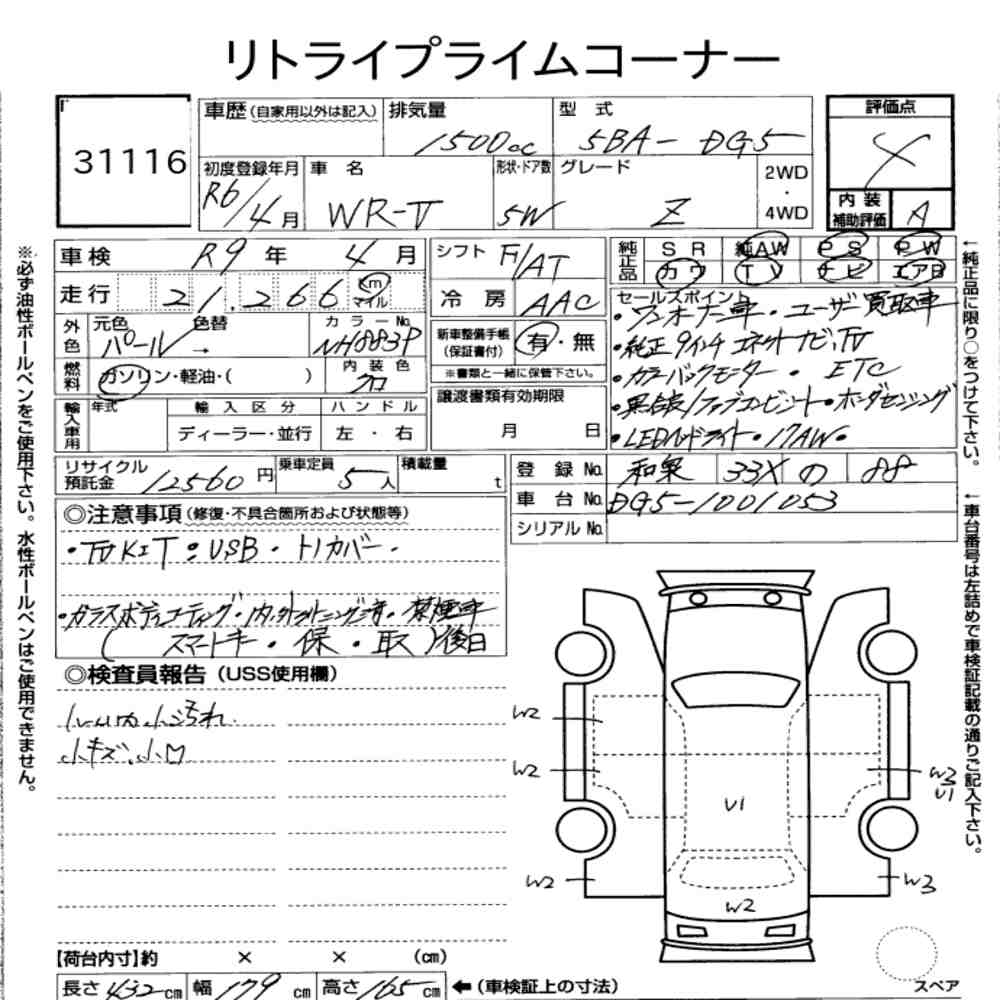 リトライプライムコーナー
31116
車歴(自家用以外は記入) 排気量 1500cc 型式 5BA-DG5
評価点 4
初度登録年月 R6/4月 車名 WR-V 形状・ドア数 5W グレード Z 2WD・4WD
内装補助評価 A
車検 R9年4月 シフト F/AT
純正品 SR 純AW PS PW
カワ TV ナビ エアB
走行 21,266 km マイル 冷房 AAC
外色 元色 パール → 色替 カラーNo. NH883P
燃料 ガソリン・軽油・( ) 内装色 クロ
新車整備手帳(保証書付) 有・無
※書類と一緒に保管下さい。
輸入車用 年式 輸入区分 ディーラー・並行 ハンドル 左・右
譲渡書類有効期限 月 日
セールスポイント
・ワンオーナー車・ユーザー買取車
・純正9インチコネクトナビ,TV
・カラーバックモニター・ETC
・黒合皮/ファブコンビシート・ホンダセンシング
・LEDヘッドライト・17AW・
リサイクル預託金 12560円 乗車定員 5人 積載量 t
登録No. 和泉 33X の 88
車台No. DG5-1001053
シリアルNo.
◎注意事項(修復・不具合箇所および状態等)
・TVKIT・USB・トノカバー・
・ガラスボディコーティング・内外トリートメント済・禁煙車
(スマートキー・保・取)後日
◎検査員報告(USS使用欄)
小汚れ
小キズ、小凹
W2
W2
W2
U1
W2
W3
U1
W3
【荷台内寸】約 × × (cm)
長さ 432cm 幅 179cm 高さ 165cm ←(車検証上の寸法)
スペア
※必ず油性ボールペンをご使用下さい。水性ボールペンはご使用できません。
←純正品に限り○をつけて下さい。
←車台番号は左詰めで車検証記載の通りご記入下さい。